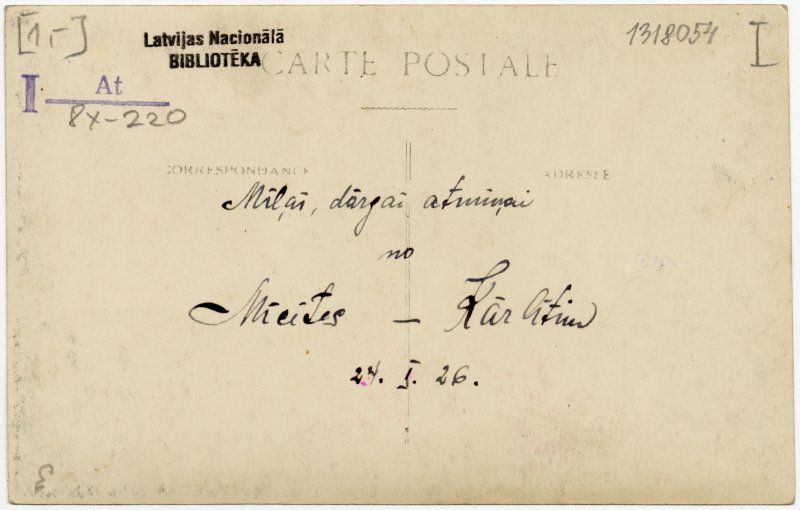 [1,-]
Latvijas Nacionālā
BIBLIOTĒKA
1318054
I
CARTE POSTALE
I At
8X-220
CORRESPONDANCE
ADRESSE
Mīļai, dārgai atmiņai
no
Mīcītes — Kārlītim
24. I. 26.